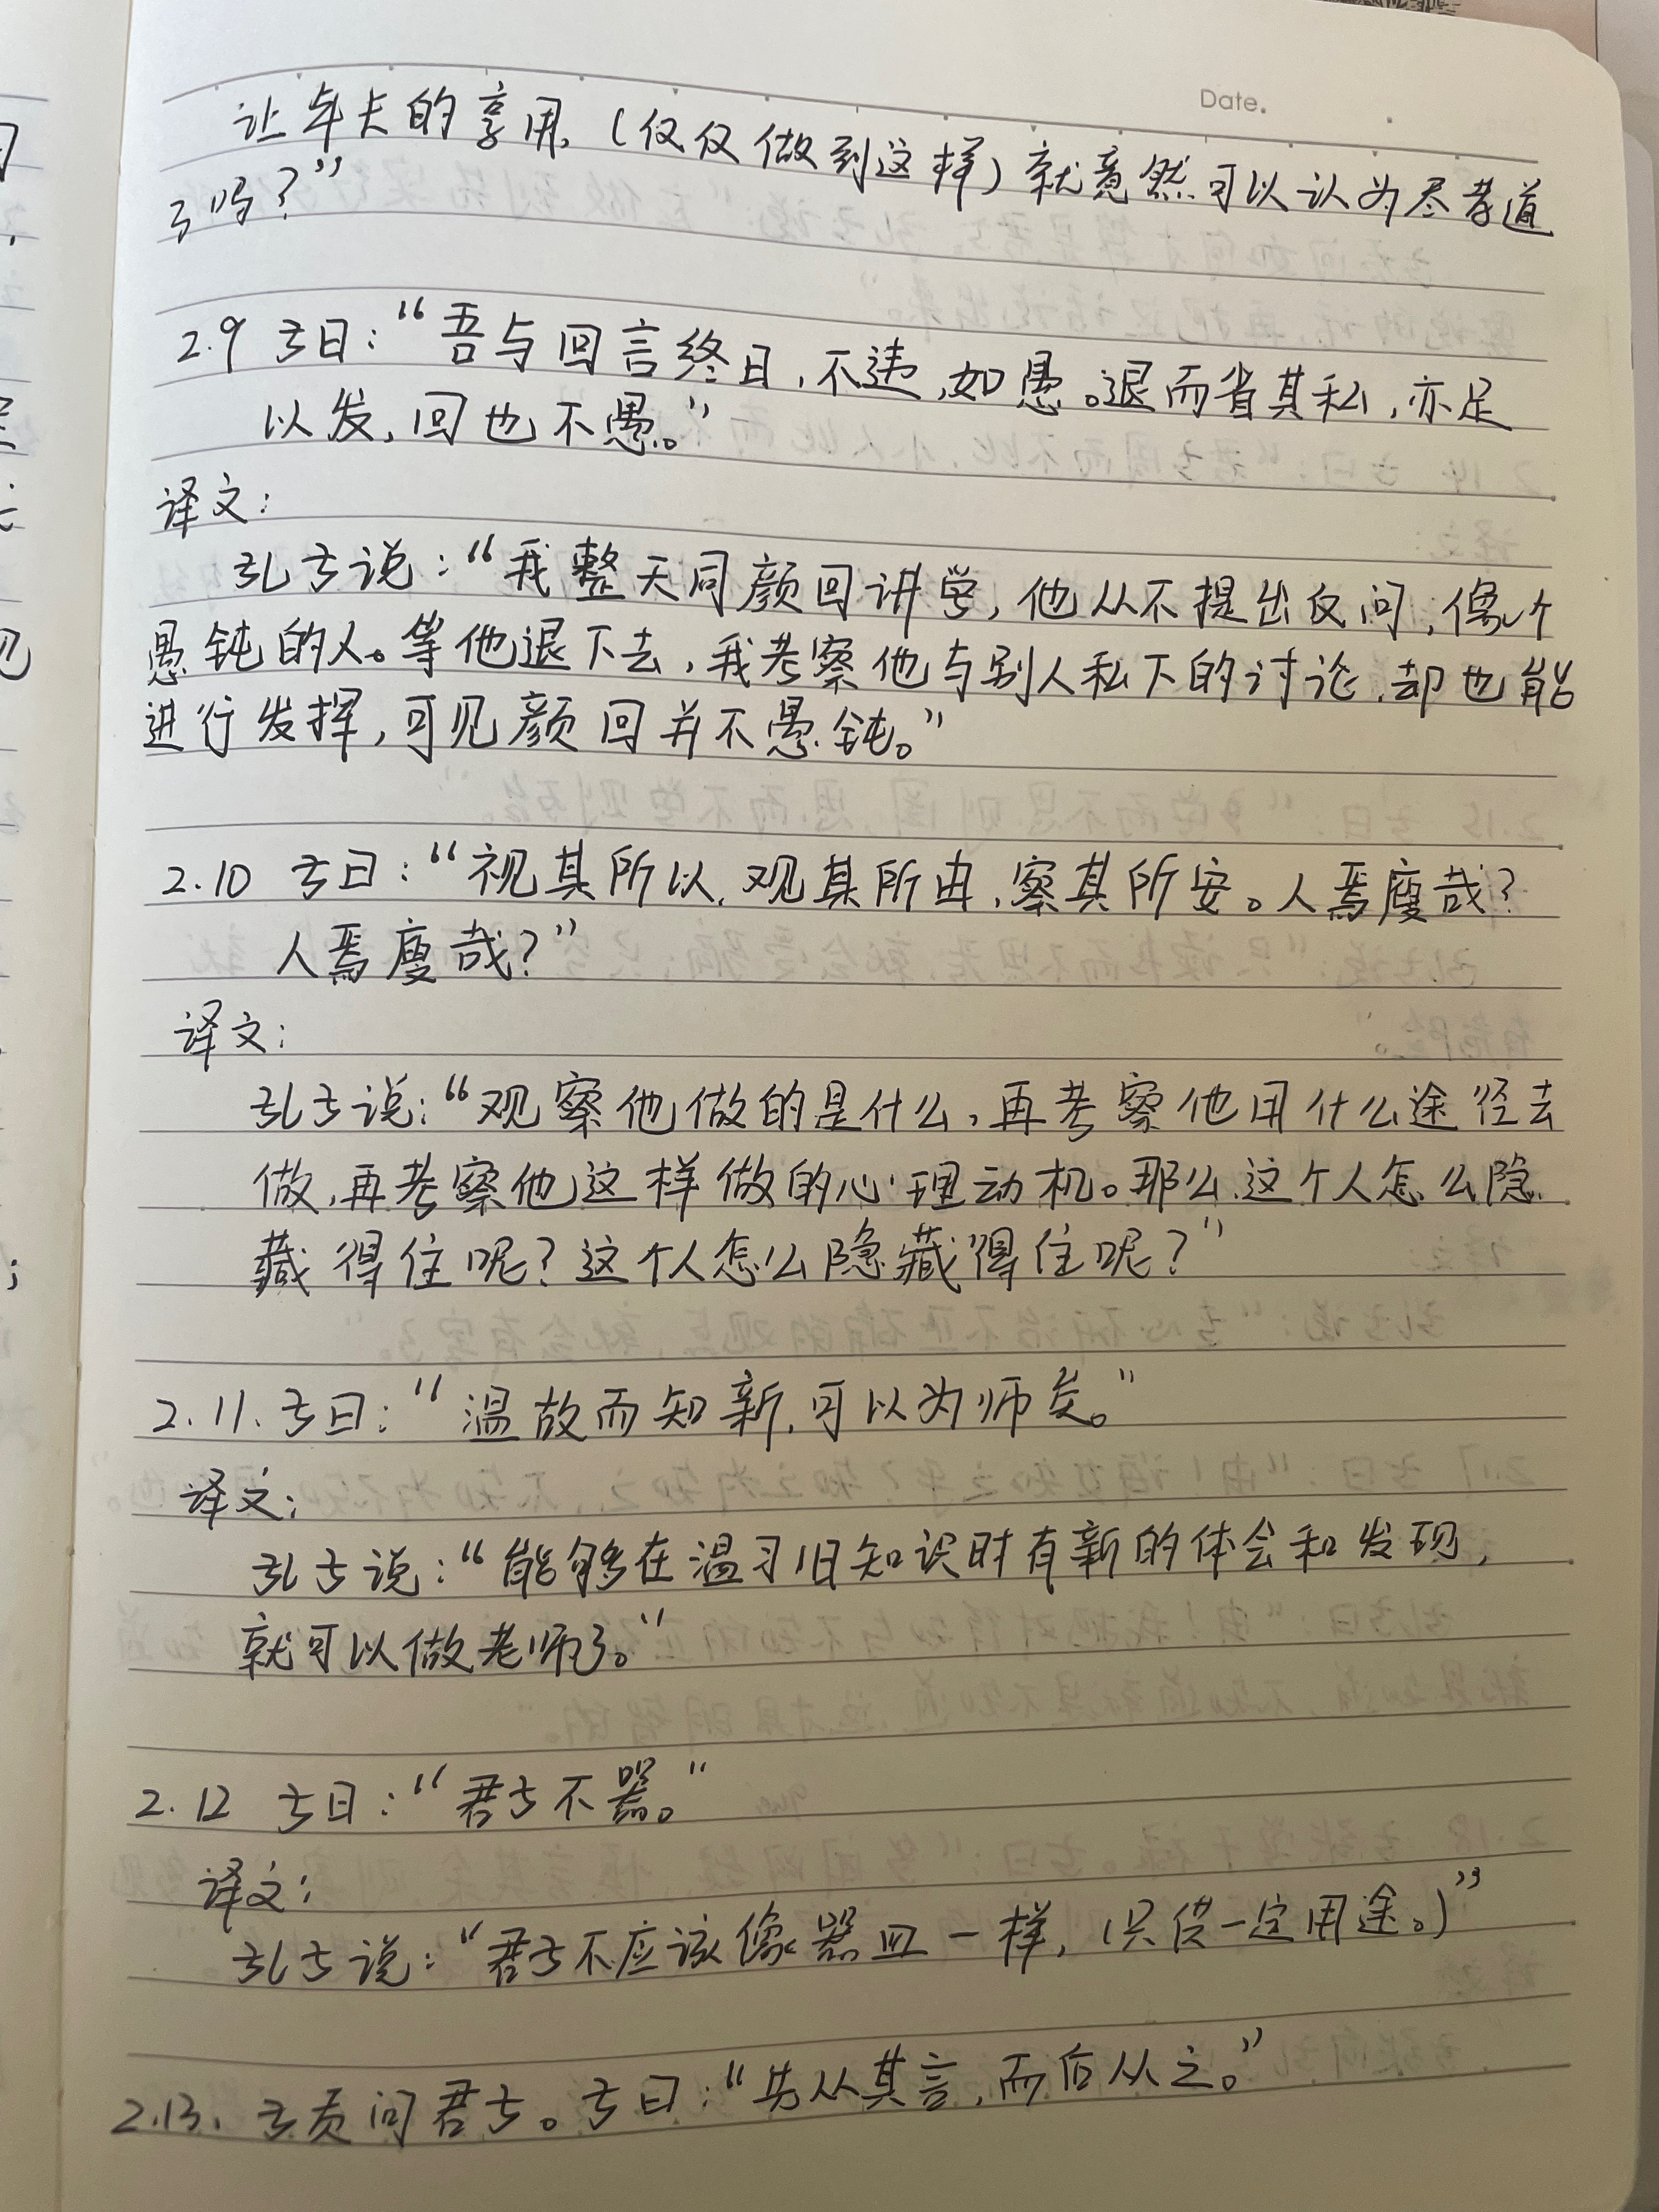 Date.
让年长的享用,(仅仅做到这样)就竟然可以认为尽孝道
了吗?”
2.9 子曰:“吾与回言终日,不违,如愚。退而省其私,亦足
以发,回也不愚。”
译文:
孔子说:“我整天同颜回讲学,他从不提出反问,像个
愚钝的人。等他退下去,我考察他与别人私下的讨论,却也能
进行发挥,可见颜回并不愚钝。”
2.10 子曰:“视其所以,观其所由,察其所安。人焉廋哉?
人焉廋哉?”
译文:
孔子说:“观察他做的是什么,再考察他用什么途径去
做,再考察他这样做的心理动机。那么,这个人怎么隐
藏得住呢?这个人怎么隐藏得住呢?”
2.11. 子曰:“温故而知新,可以为师矣。”
译文:
孔子说:“能够在温习旧知识时有新的体会和发现,
就可以做老师了。”
2.12 子曰:“君子不器。”
译文:
孔子说:“君子不应该像器皿一样,(只供一定用途。)”
2.13. 子贡问君子。子曰:“先从其言,而后从之。”